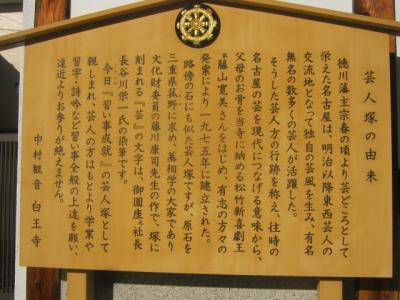 芸人塚の由来
徳川藩主宗春の頃より芸どころとして
栄えた名古屋は、明治以降東西芸人の
交流地となって独自の芸風を生み、有名
無名の数多くの芸人が活躍した。
そうした芸人方の行跡を称え、往時の
名古屋の芸を現代につなげる意味から、
父母のお骨を当寺に納める松竹新喜劇王
故藤山寛美さんをはじめ、有志の方々の
発案により一九七五年に建立された。
路傍の石にも似た芸人塚ですが、原石を
三重県菰野に求め、墓相学の大家であり
文化財委員の藤川康司先生の作で、塚に
刻まれる『芸』の文字は、御園座元社長
長谷川栄一氏の染筆です。
今日、『習い事成就』の芸人塚として
親しまれ、芸人の方はもとより学業や
習字・詩吟など習い事全般の上達を願い、
遠近よりお参りが絶えません。
中村観音 白王寺